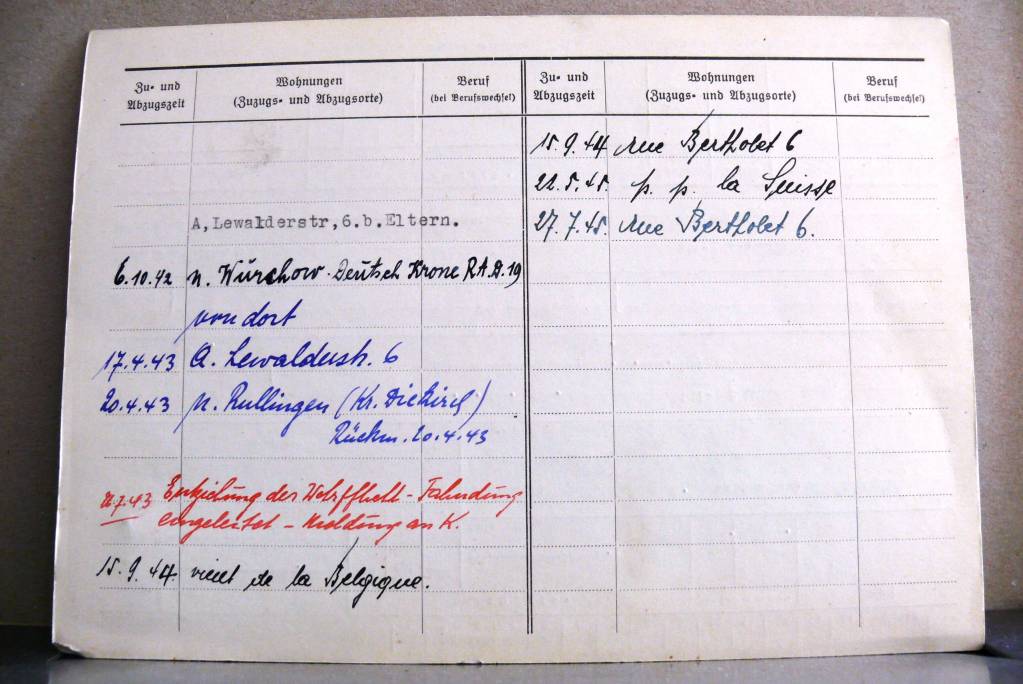 Zu- und Abzugszeit
Wohnungen (Zuzugs- und Abzugsorte)
Beruf (bei Berufswechsel)
A,Lewalderstr,6.b.Eltern.
6.10.42 n. Wurchow-Deutsch Krone R.A.D.19
von dort
17.4.43 A. Lewalderstr. 6
20.4.43 n. Rullingen (Kr. Diekirch)
Rückm. 20.4.43
7.43 Entziehung der Wehrpflicht - Fahndung
eingeleitet - Meldung an K.
15.9.44 vient de la Belgique.
Zu- und Abzugszeit
Wohnungen (Zuzugs- und Abzugsorte)
Beruf (bei Berufswechsel)
15.9.44 rue Bertholet 6
22.5.45. p. p. la Suisse
27.7.45. rue Bertholet 6.